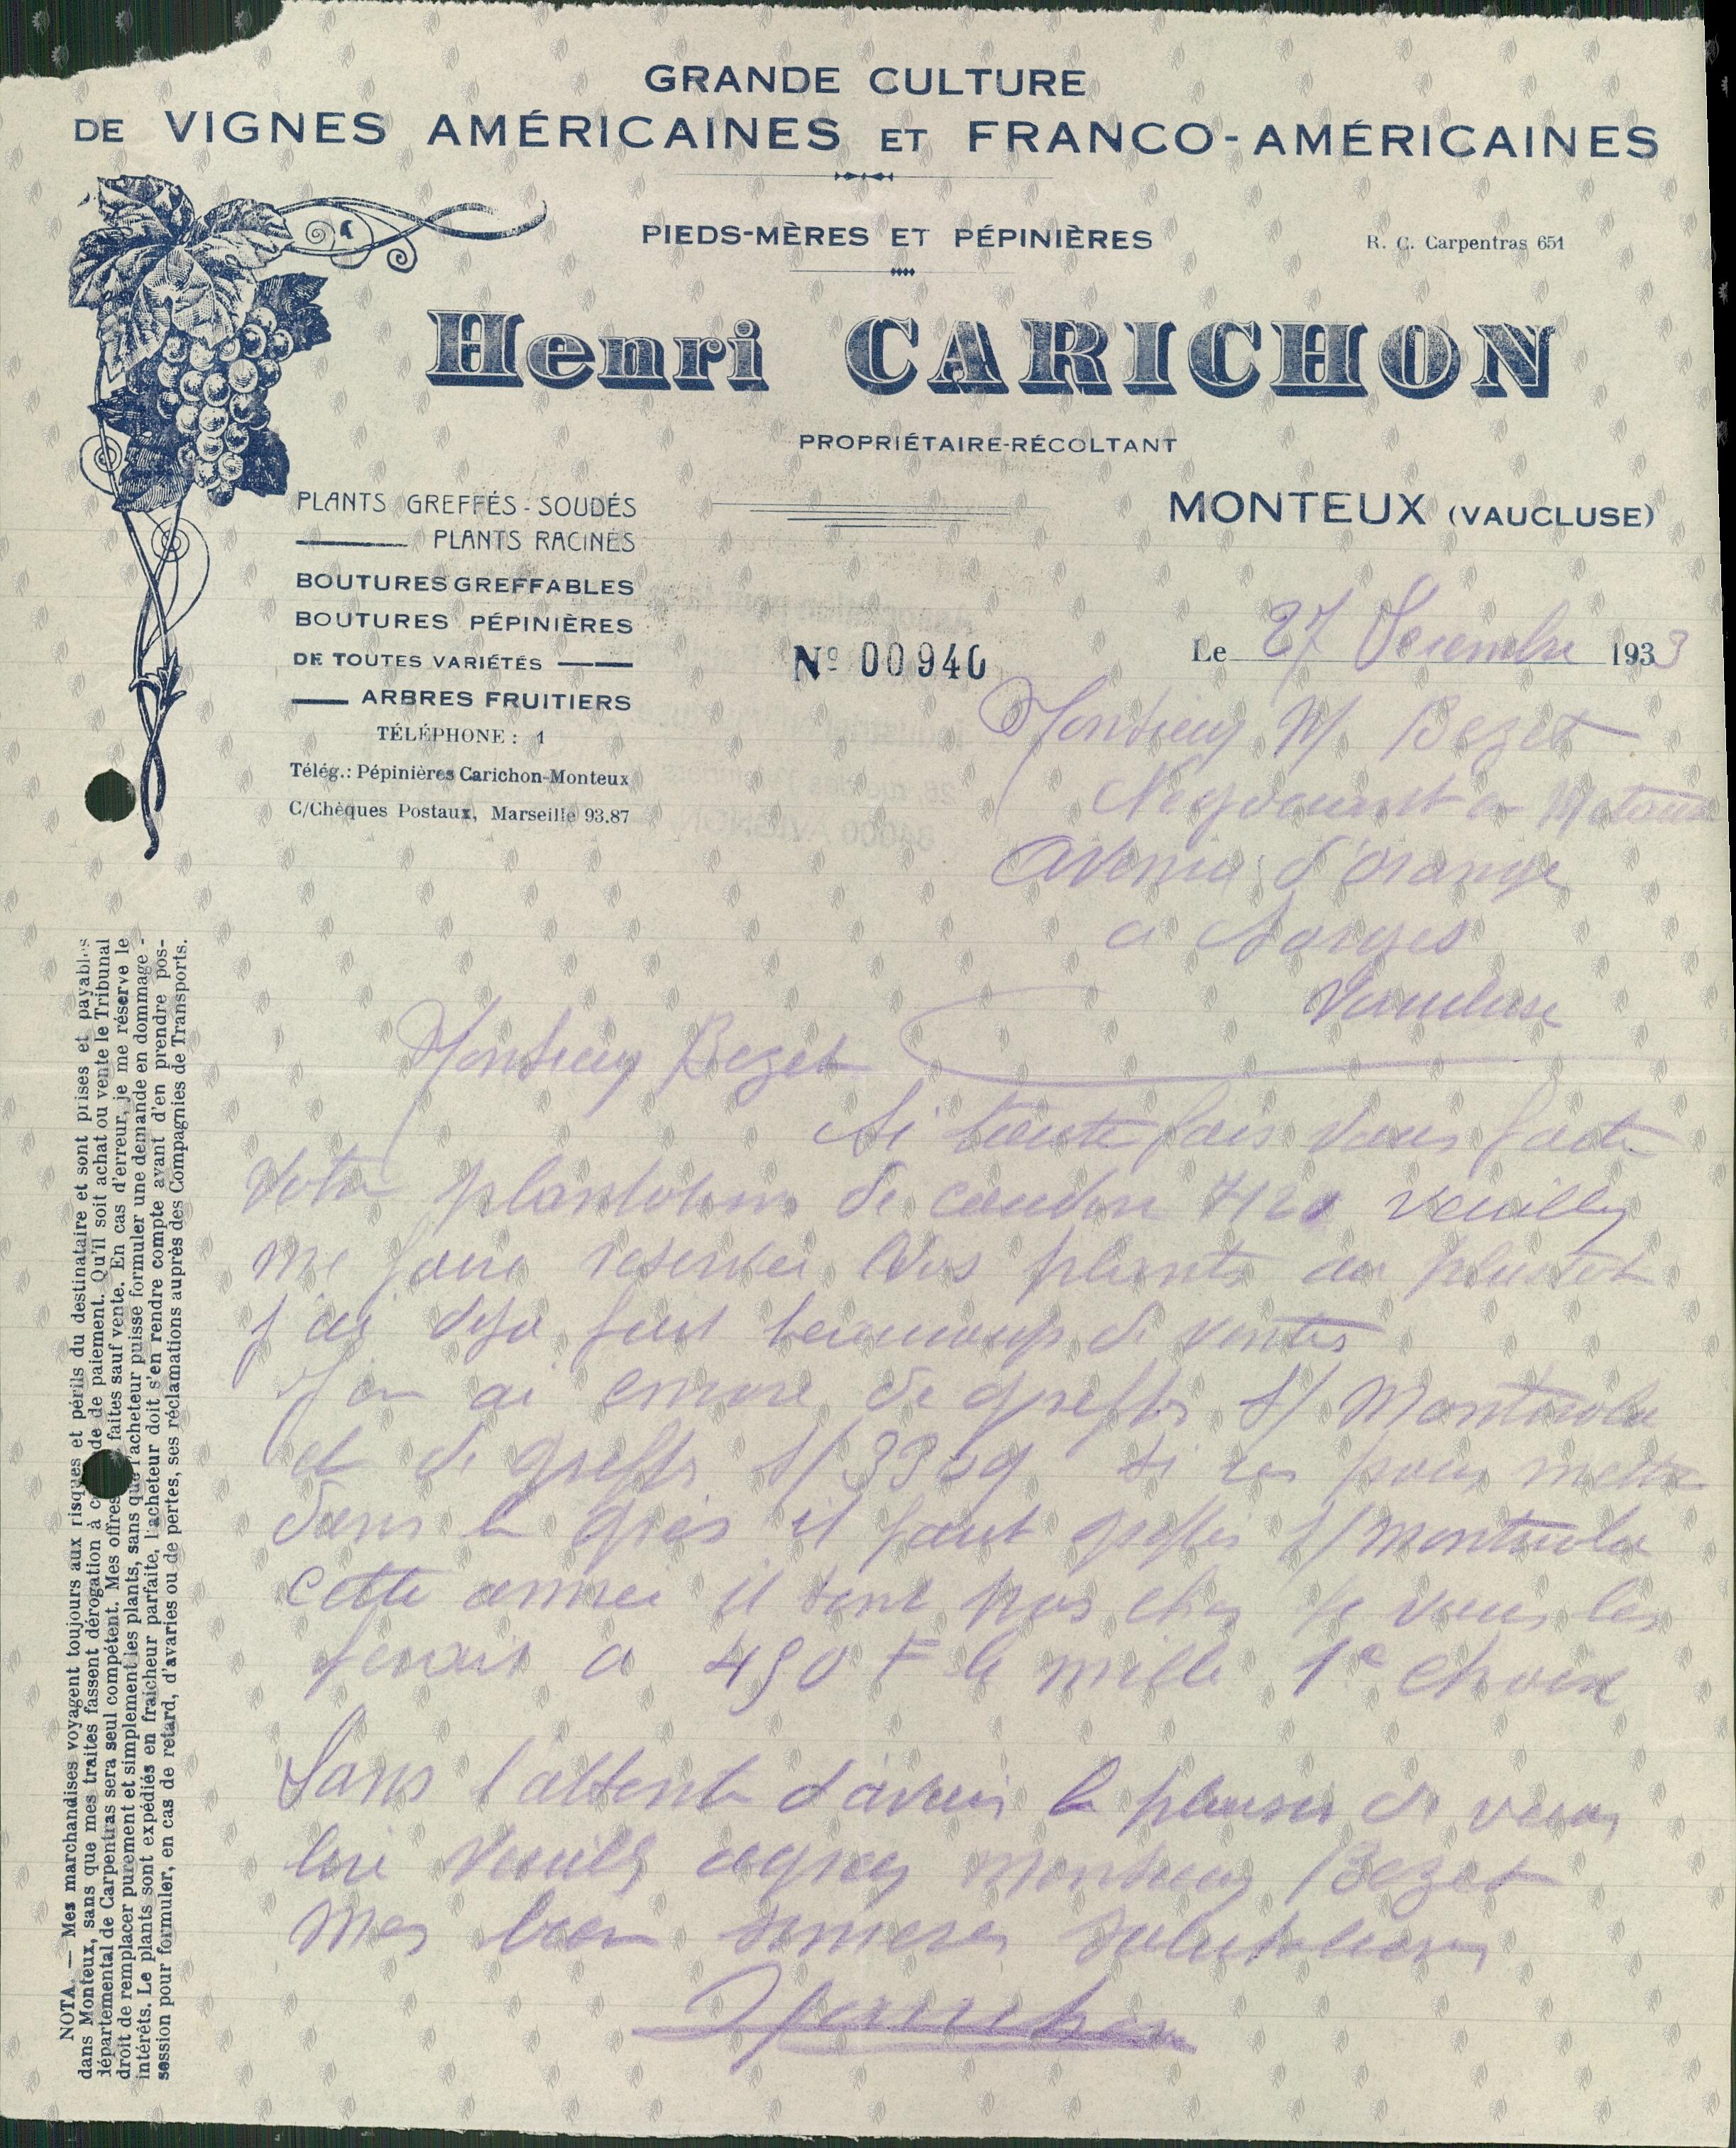 GRANDE CULTURE
DE VIGNES AMÉRICAINES ET FRANCO-AMÉRICAINES
PIEDS-MÈRES ET PÉPINIÈRES
R. C. Carpentras 651
Henri CARICHON
PROPRIÉTAIRE-RÉCOLTANT
MONTEUX (VAUCLUSE)
PLANTS GREFFÉS-SOUDÉS
PLANTS RACINÉS
BOUTURES GREFFABLES
BOUTURES PÉPINIÈRES
DE TOUTES VARIÉTÉS
ARBRES FRUITIERS
TÉLÉPHONE : 1
Télég.: Pépinières Carichon-Monteux
C/Chèques Postaux, Marseille 93.87
Nº 00940
Le 27 Decembre 1933
Monsieur M/ Bezet
Negociant en
Avenue d'Orange
a Sorgues
Vaucluse
Monsieur Bezet
Si toute fois vous faite
votre plantation de couderc 7120 veuillez
me faire reserver Vos plants au plustot
j'ai deja fait beaucoup de ventes
J'en ai encore de greffes S/ Monticola
et de greffes S/ 3309 si ces pour mettre
dans le gres il faut greffes S/ monticola
cette année il sont pas cher je vous les
ferais a 450 F le mille 1e choix
Dans l'attente d'avoir le plaisir de vous
lire Veuillez agreer Monsieur Bezet
Mes bien sinceres Salutations
HCarichon
NOTA. — Mes marchandises voyagent toujours aux risques et périls du destinataire et sont prises et payables
dans Monteux, sans que mes traites fassent dérogation à de de paiement. Qu'il soit achat ou vente le Tribunal
départemental de Carpentras sera seul compétent. Mes offres faites sauf vente. En cas d'erreur, je me réserve le
droit de remplacer purement et simplement les plants, sans que l'acheteur puisse formuler une demande en dommage-
intérêts. Le plants sont expédiés en fraîcheur parfaite, l'acheteur doit s'en rendre compte avant d'en prendre pos-
session pour formuler, en cas de retard, d'avaries ou de pertes, ses réclamations auprès des Compagnies de Transports.